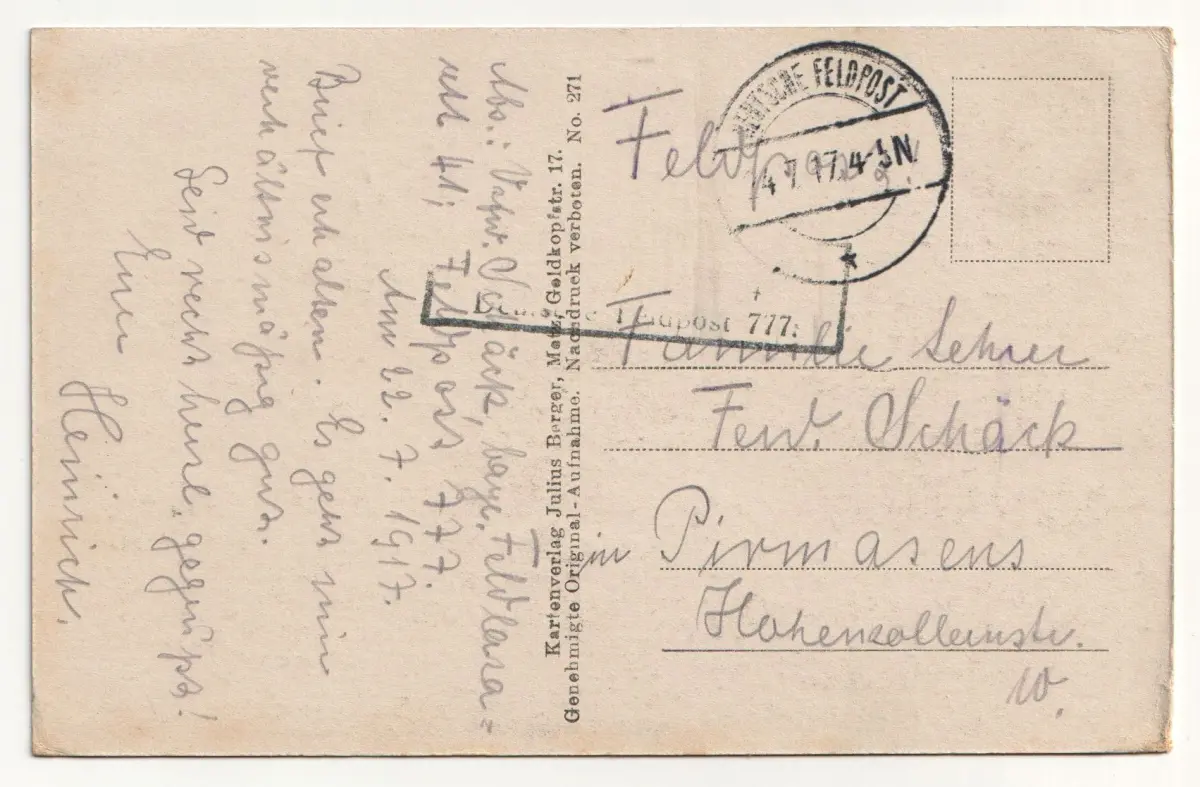 Abs.: Vzfw. Schäck, bayr. Feldlaza=
rett 41, Feldpost 777.
Am 22. 7. 1917.
Brief erhalten. Es geht mir
verhältnismäßig gut.
Seid recht herzl. gegrüßt!
Euer
Heinrich.
Kartenverlag Julius Berger, Metz, Goldkopfstr. 17.
Genehmigte Original-Aufnahme. Nachdruck verboten. No. 271
DEUTSCHE FELDPOST
7 17 4-5N
Feldpost 777.
Familie Lehrer
Ferd. Schäck
in Pirmasens
Hohenzollernstr.